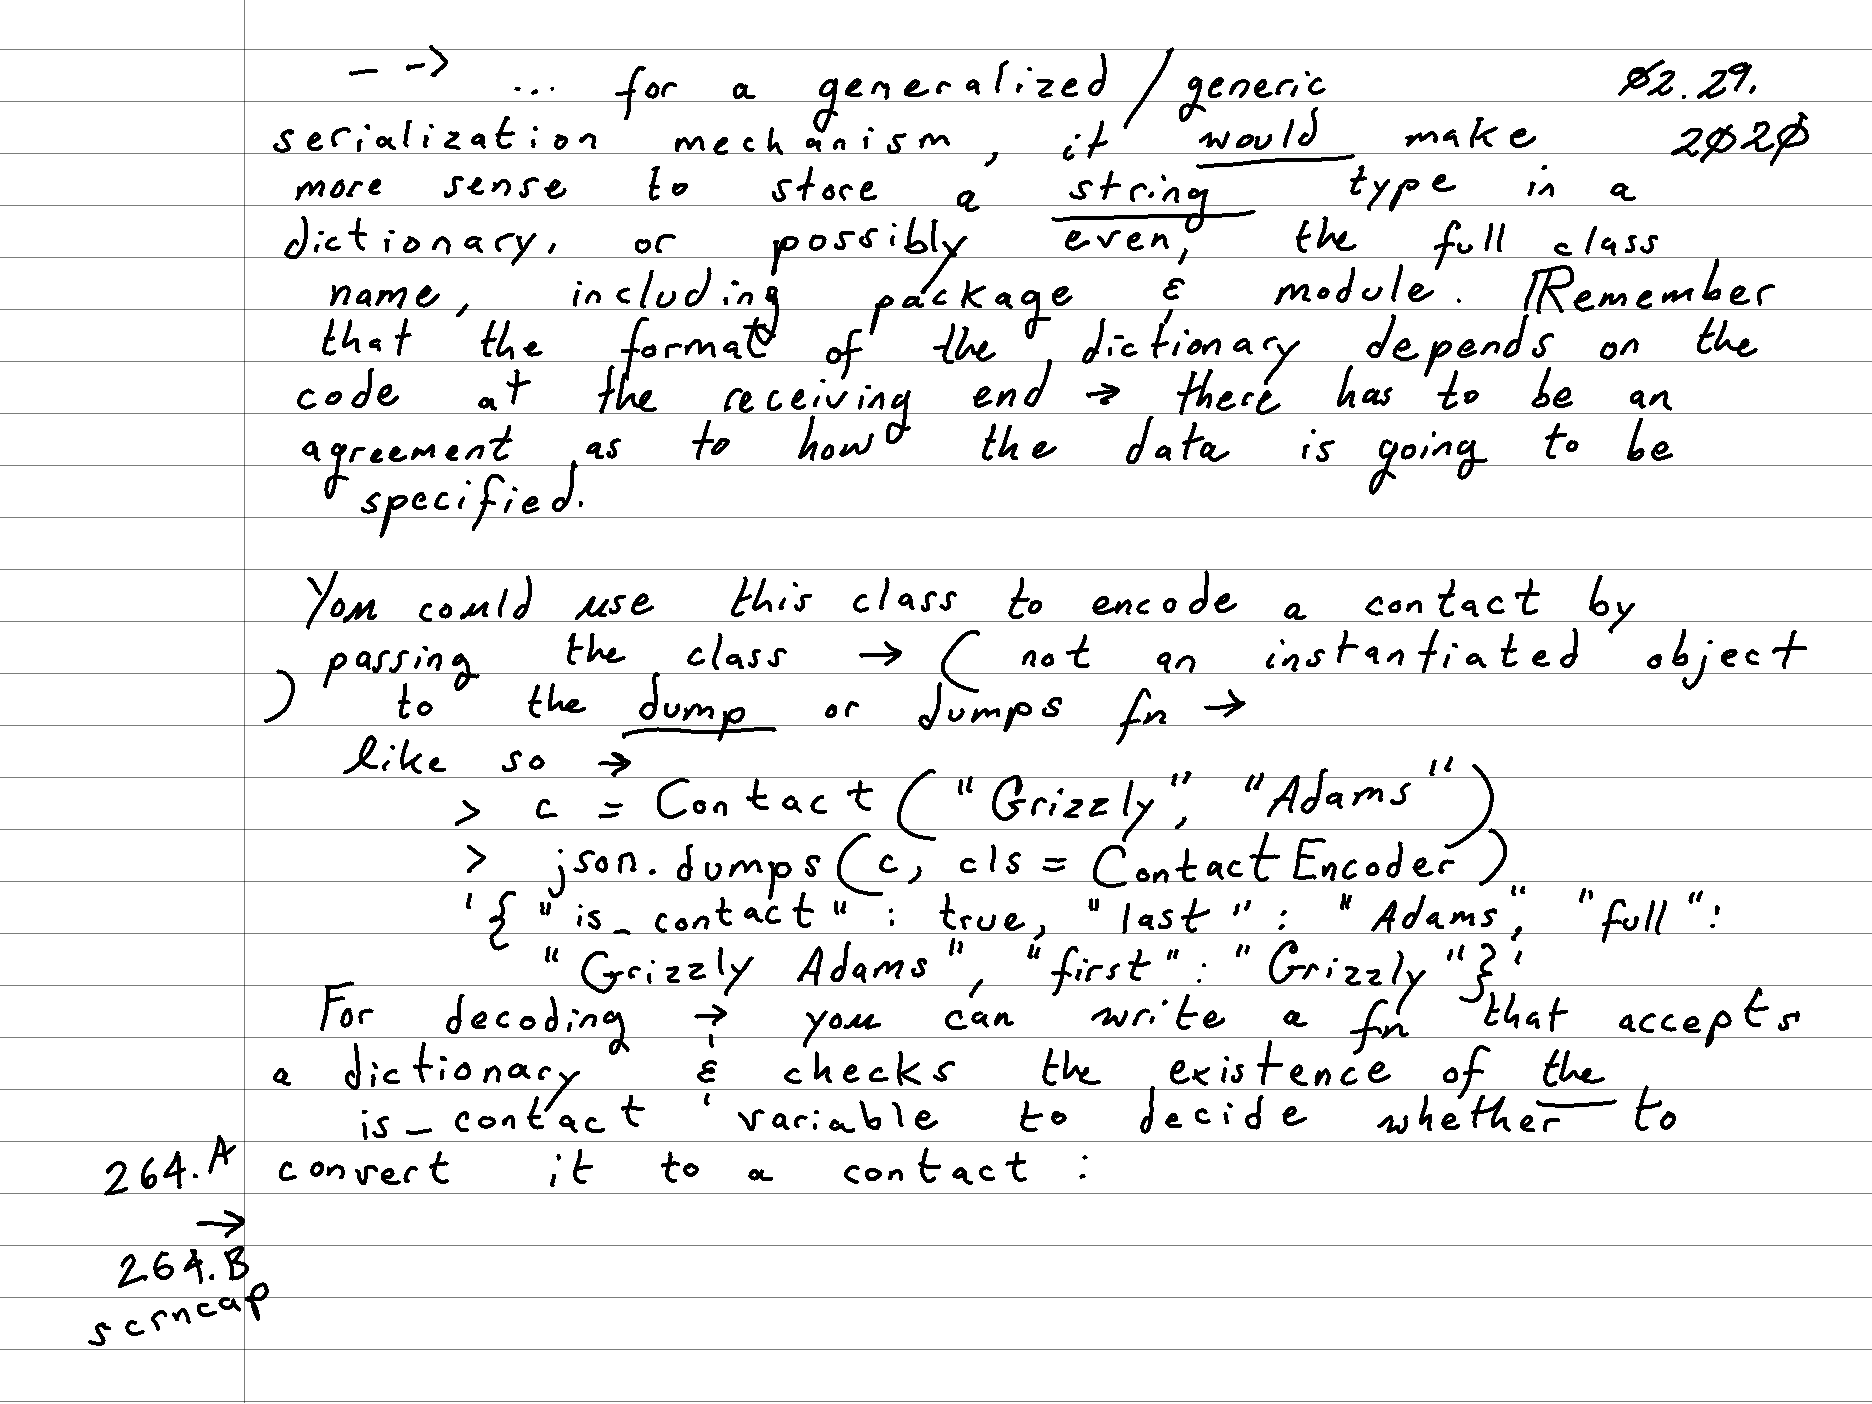 – -> ... for a generalized / generic 02.29.
serialization mechanism, it would make 2020
more sense to store a string type in a
dictionary, or possibly even, the full class
name, including package & module. Remember
that the format of the dictionary depends on the
code at the receiving end → there has to be an
agreement as to how the data is going to be
specified.
You could use this class to encode a contact by
passing the class → ( not an instantiated object
) to the dump or dumps fn →
like so →
> c = Contact ( "Grizzly", "Adams" )
> json.dumps (c, cls = ContactEncoder )
'{ "is_contact" : true, "last" : "Adams", "full":
"Grizzly Adams", "first" : "Grizzly"}'
For decoding → you can write a fn that accepts
a dictionary & checks the existence of the
is_contact variable to decide whether to
264.A convert it to a contact :
→
264.B
scrncap